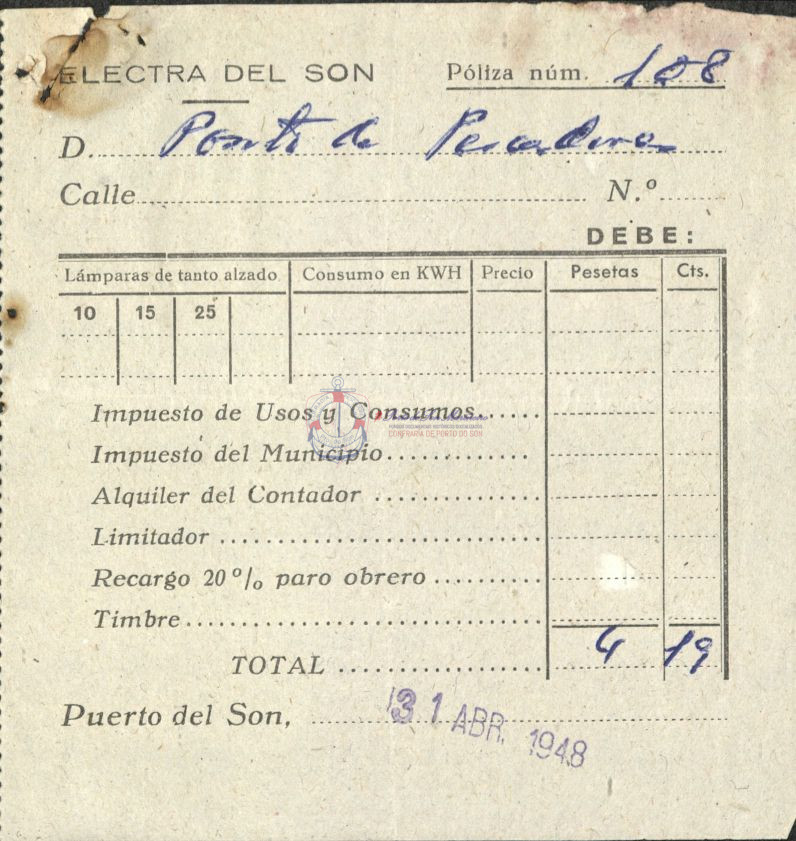 ELECTRA DEL SON
Póliza núm. 108
D. Posito de Pescadores
Calle N.º
DEBE:
Lámparas de tanto alzado Consumo en KWH Precio Pesetas Cts.
10 15 25
Impuesto de Usos y Consumos
Impuesto del Municipio
Alquiler del Contador
Limitador
Recargo 20% paro obrero
Timbre
TOTAL 4 19
Puerto del Son, 31 ABR. 1948
CONFRARÍA DE PORTO DO SON